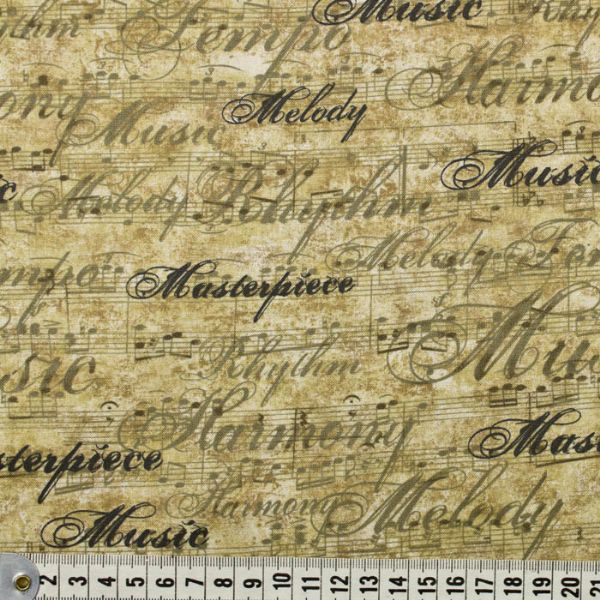 Music Rhythm
Rhythm Tempo
Harmony
Melody
Music
Music
Melody Rhythm
Melody Tempo
Tempo
Masterpiece
Rhythm
Music
Music
Harmony
Masterpiece
Masterpiece
Harmony Melody
Music
2 3 4 5 6 7 8 9 10 11 12 13 14 15 16 17 18 19 20 21